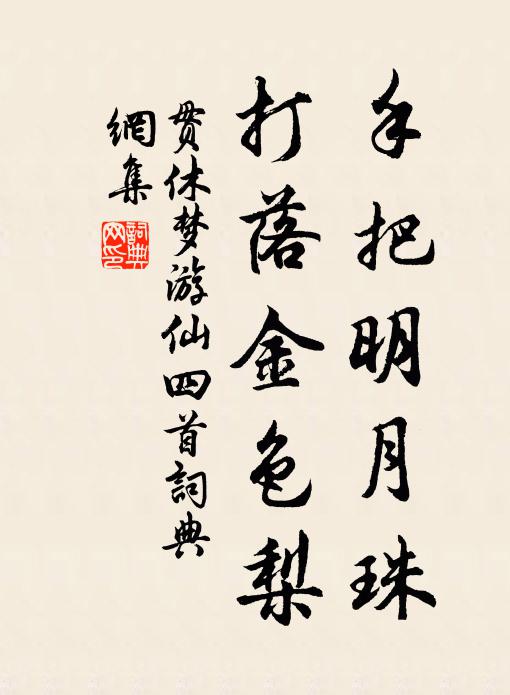 手把明月珠
打落金色梨
贯休梦游仙四首詞典
網集
詞典
网印